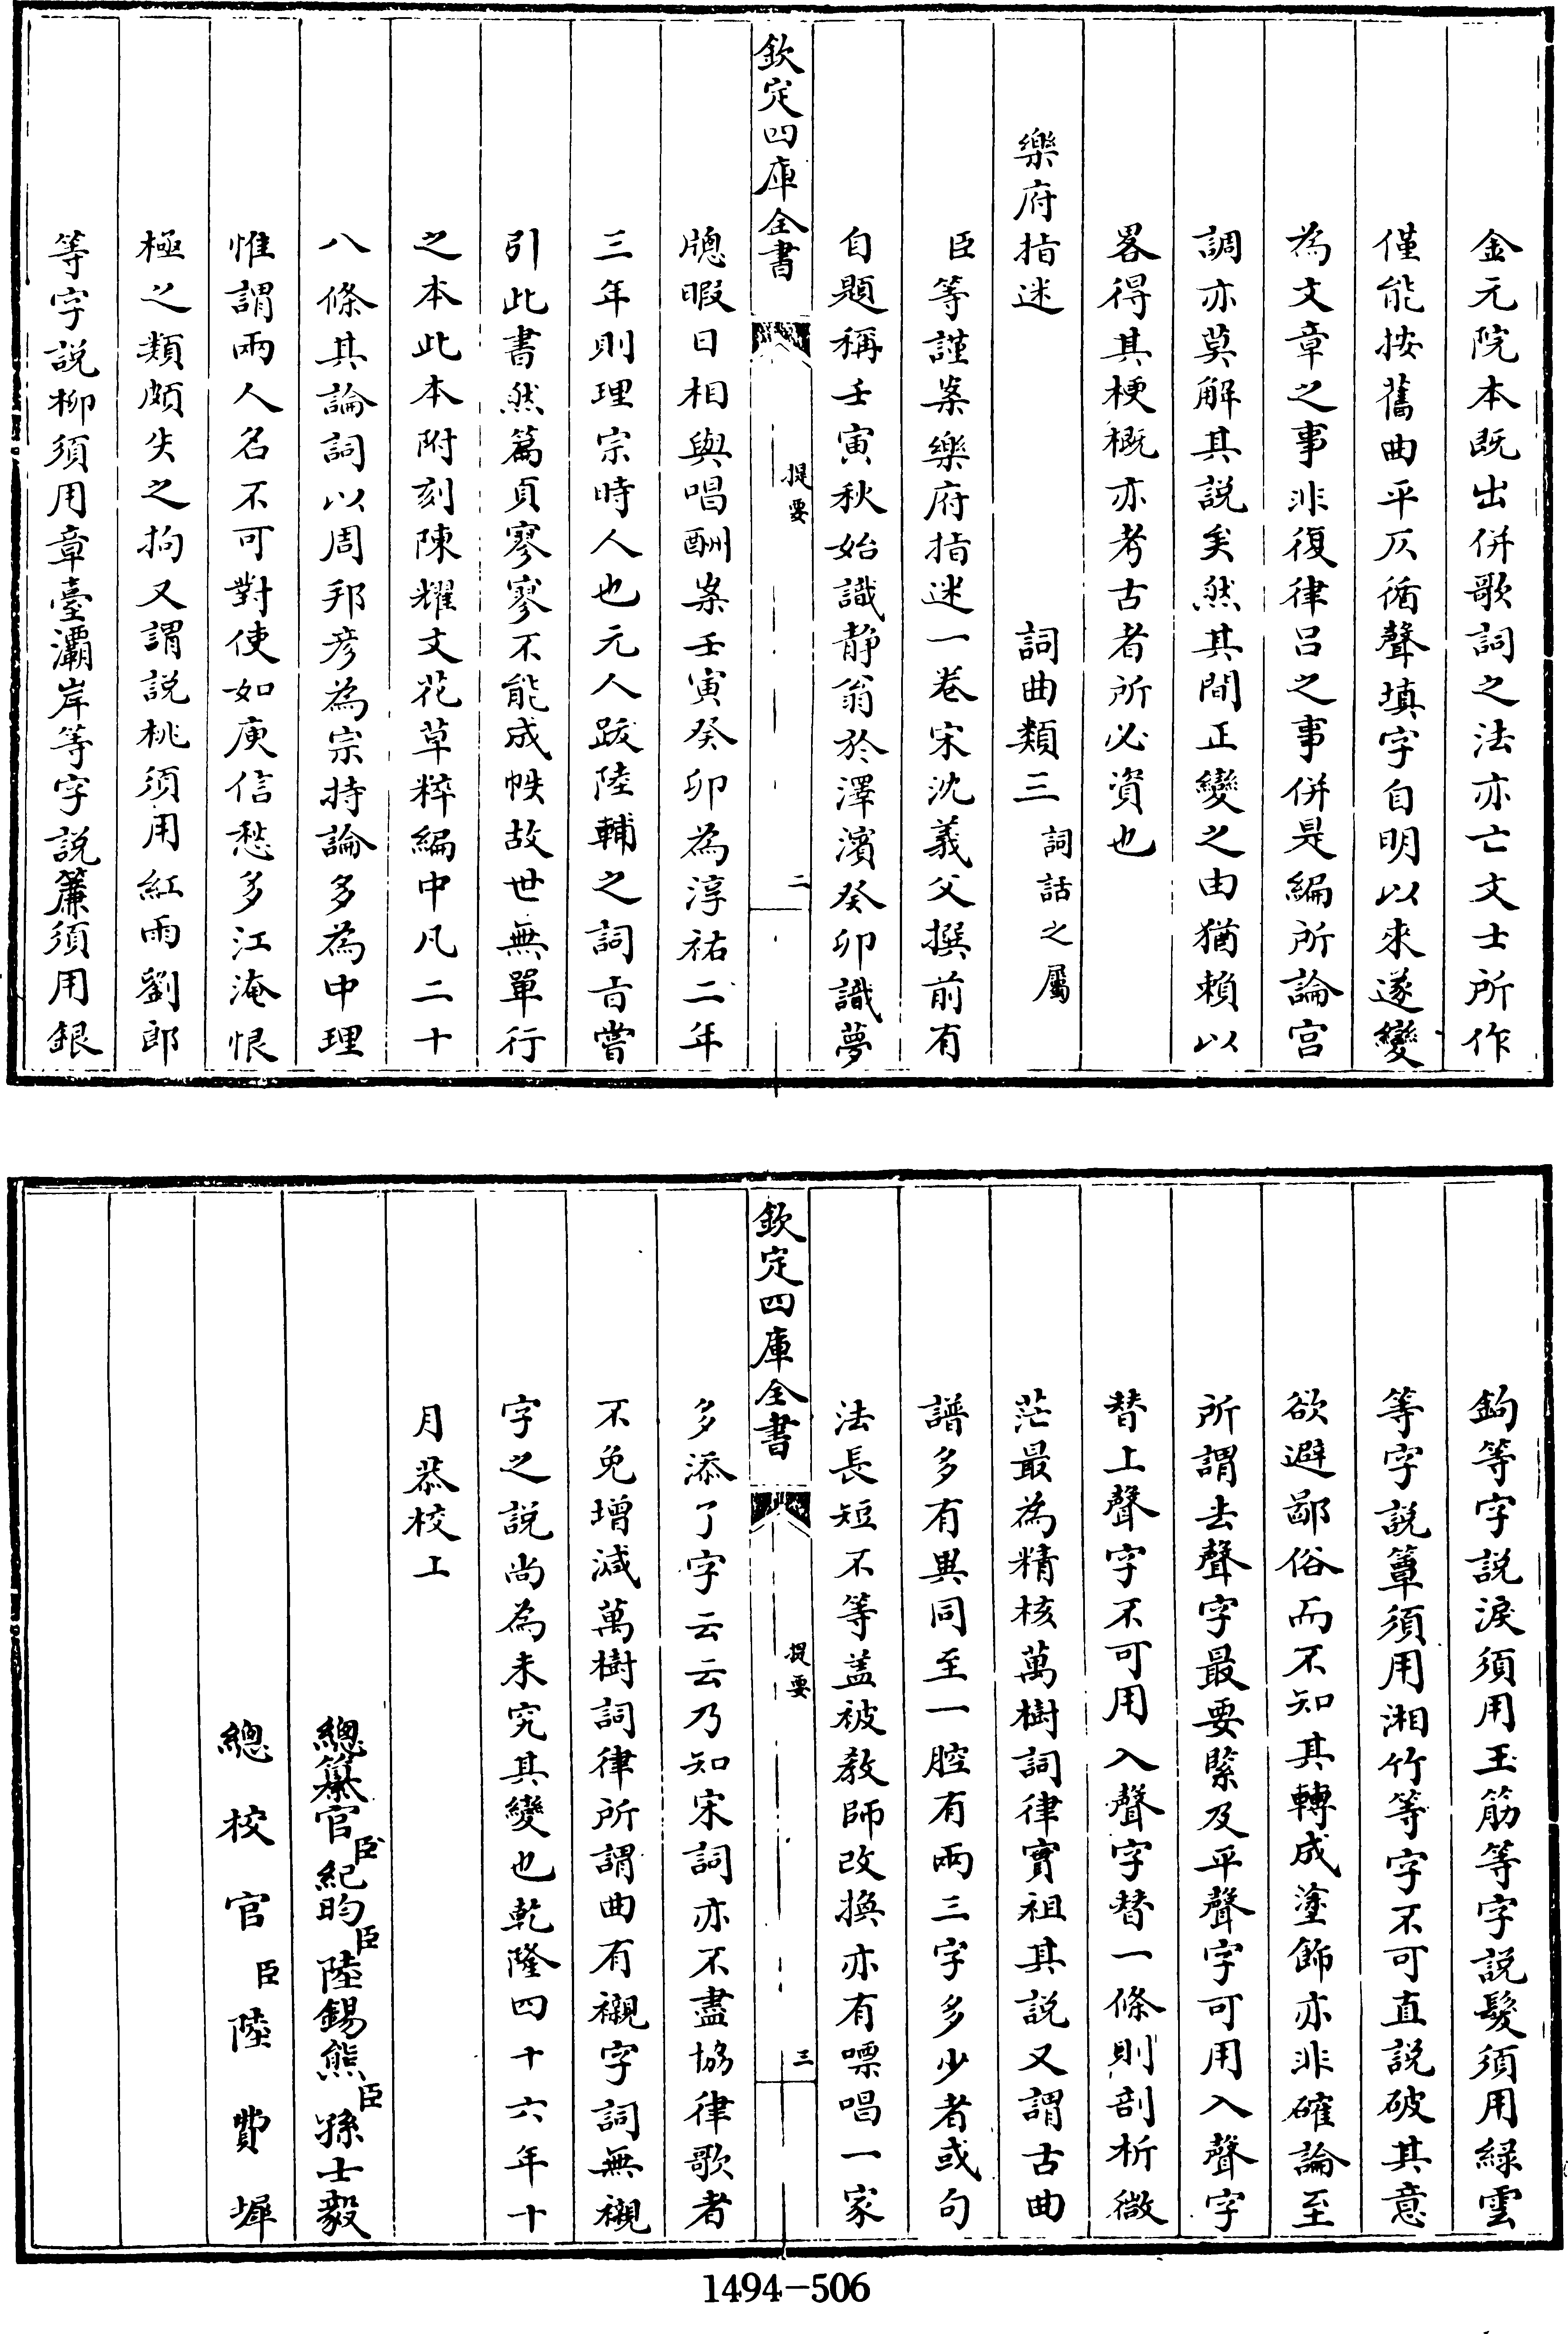 金元院本既出併歌詞之法亦亡文士所作
僅能按舊曲平仄循聲填字自明以來遂變
為文章之事非復律吕之事併是編所論宫
調亦莫解其説矣然其間正變之由猶賴以
畧得其梗概亦考古者所必資也
樂府指迷　詞曲類三　詞話之屬
臣等謹案樂府指迷一卷宋沈義父撰前有
自題稱壬寅秋始識静翁於澤濱癸卯識夢
欽定四庫全書
提要
二
牕暇日相與唱酬案壬寅癸卯為淳祐二年
三年則理宗時人也元人跋陸輔之詞㫖嘗
引此書然篇頁寥寥不能成帙故世無單行
之本此本附刻陳耀文花草粹編中凡二十
八條其論詞以周邦彦為宗持論多為中理
惟謂兩人名不可對使如庾信愁多江淹恨
極之類頗失之拘又謂説桃須用紅雨劉郎
等字説柳須用章臺灞岸等字説簾須用銀
鉤等字説淚須用玉筯等字説髮須用緑雲
等字説簟須用湘竹等字不可直説破其意
欲避鄙俗而不知其轉成塗飾亦非確論至
所謂去聲字最要緊及平聲字可用入聲字
替上聲字不可用入聲字替一條則剖析微
茫最為精核萬樹詞律實祖其説又謂古曲
譜多有異同至一腔有兩三字多少者或句
法長短不等蓋被教師改換亦有嘌唱一家
欽定四庫全書
提要
三
多添了字云云乃知宋詞亦不盡協律歌者
不免增減萬樹詞律所謂曲有襯字詞無襯
字之説尚為未究其變也乾隆四十六年十
月恭校上
總纂官臣紀昀臣陸錫熊臣孫士毅
總校官臣陸費墀
1494-506